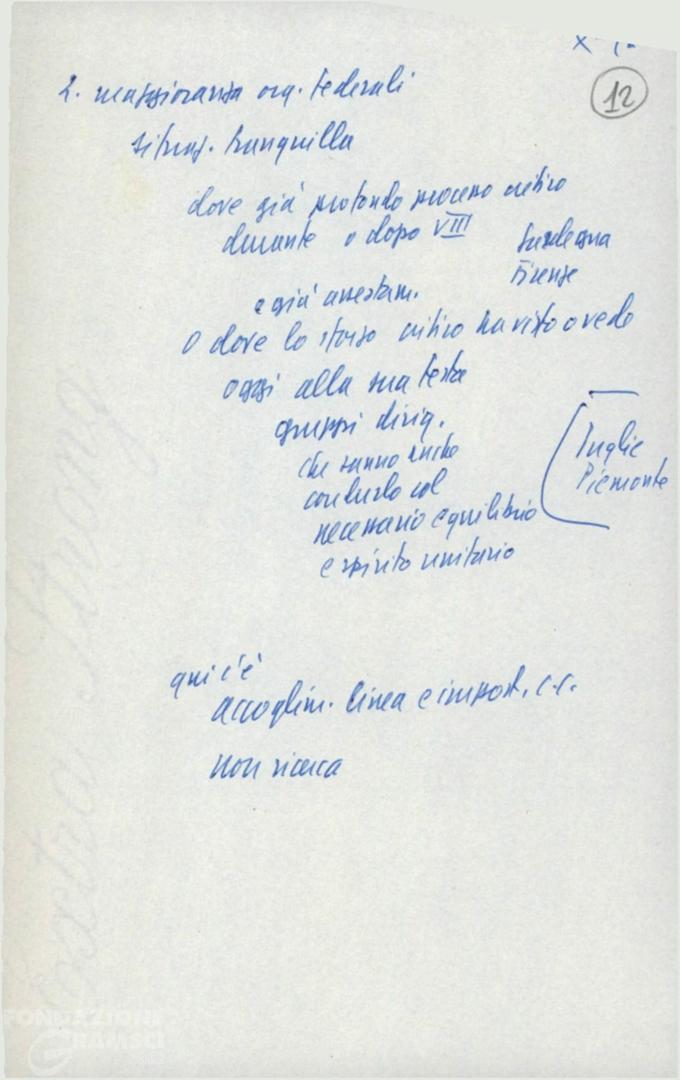 12
2. maggioranza org. federali
situaz. tranquilla
dove già profondo processo critico
durante o dopo VIII
Sardegna
Firenze
e già assestam.
o dove lo sforzo critico ha visto o vede
oggi alla sua testa
gruppi dirig.
che sanno anche
condurlo col
necessario equilibrio
e spirito unitario
Puglie
Piemonte
qui c'è
accoglim. linea e impost. c.c.
non ricerca
Extra Strong
FONDAZIONE
GRAMSCI